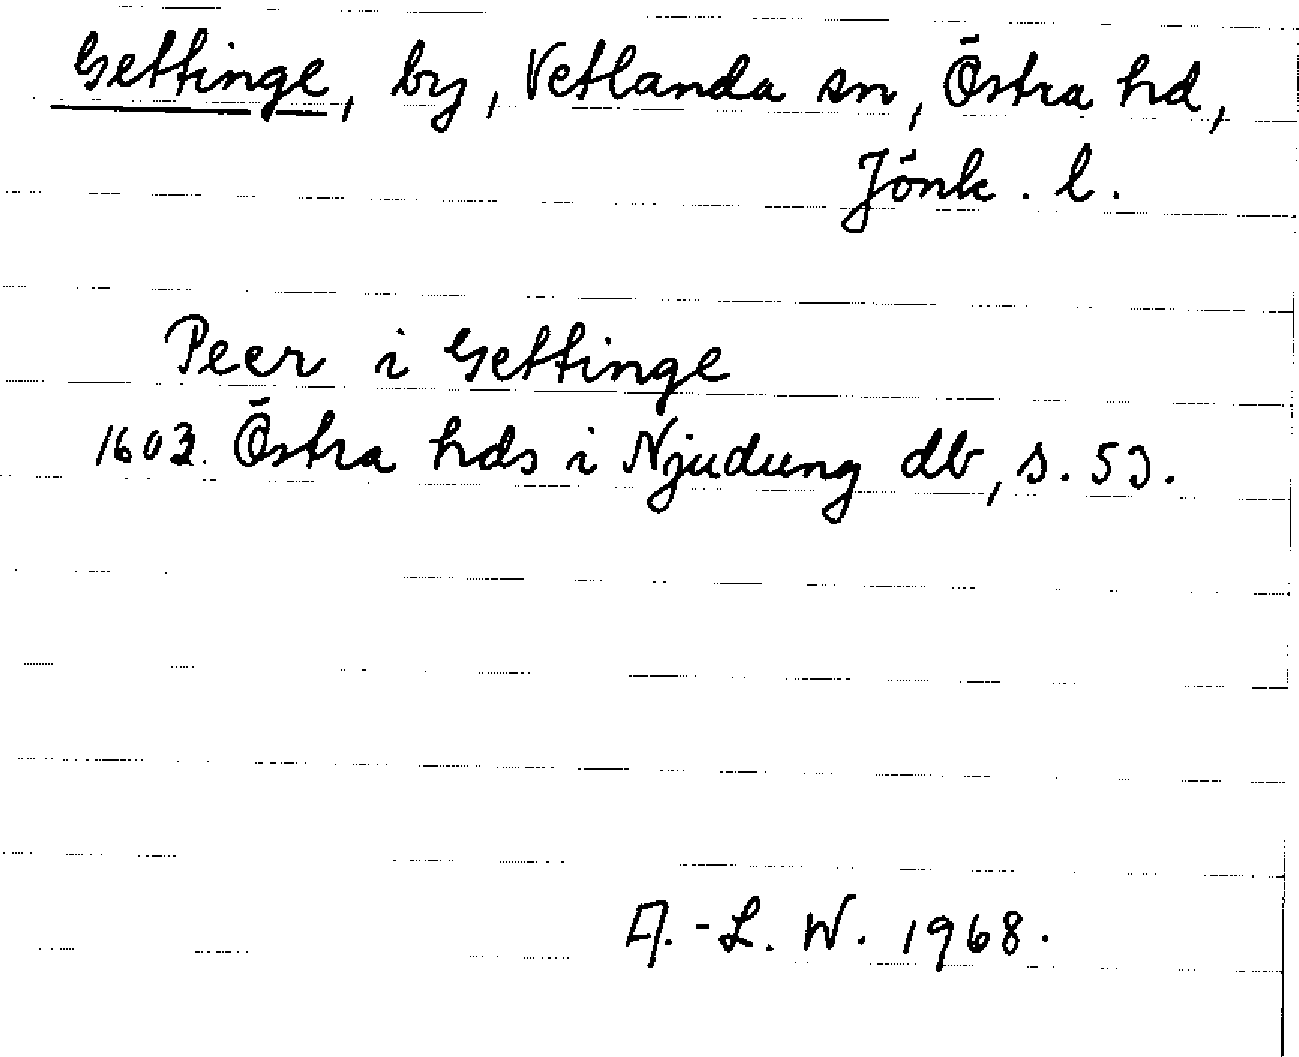 Gettinge, by, Vetlanda sn, Östra hd,
Jönk. l.
Peer i Gettinge
1603. Östra hds i Njudung db, s. 53.
A.-L. W. 1968.